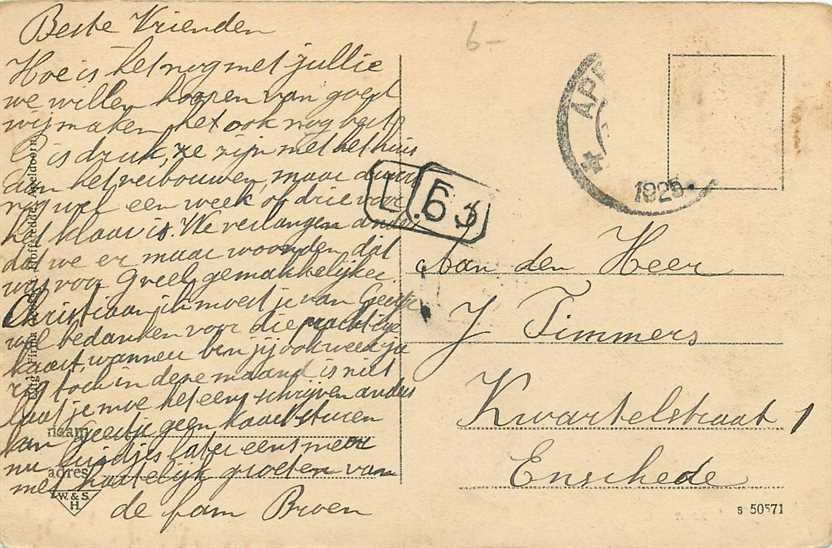 Beste Vrienden
Hoe is het nog met jullie
we willen hoopen van goed
wij maken het ook nog best
is druk, ze zijn met het huis
aan het verbouwen, maar
nog wel een week of drie voor
het klaar is. We verlangen
dat we er maar woonden dat
was voor Greet gemakkelijker
Christiaan ik moest je van Geertje
wel bedanken voor die prachtige
kaart, wanneer ben jij ook weer ja
rig toch in deze maand is niet
laat je moe het eens schrijven anders
kan Geertje geen kaart sturen
nu luidjes later eens meer
met hartelijk groeten van
de fam Broen
naam
adres
W. & S.
H.
6-
APE
1925
L. 63
Aan den Heer
J Timmers
Kwartelstraat 1
Enschede
s 50571